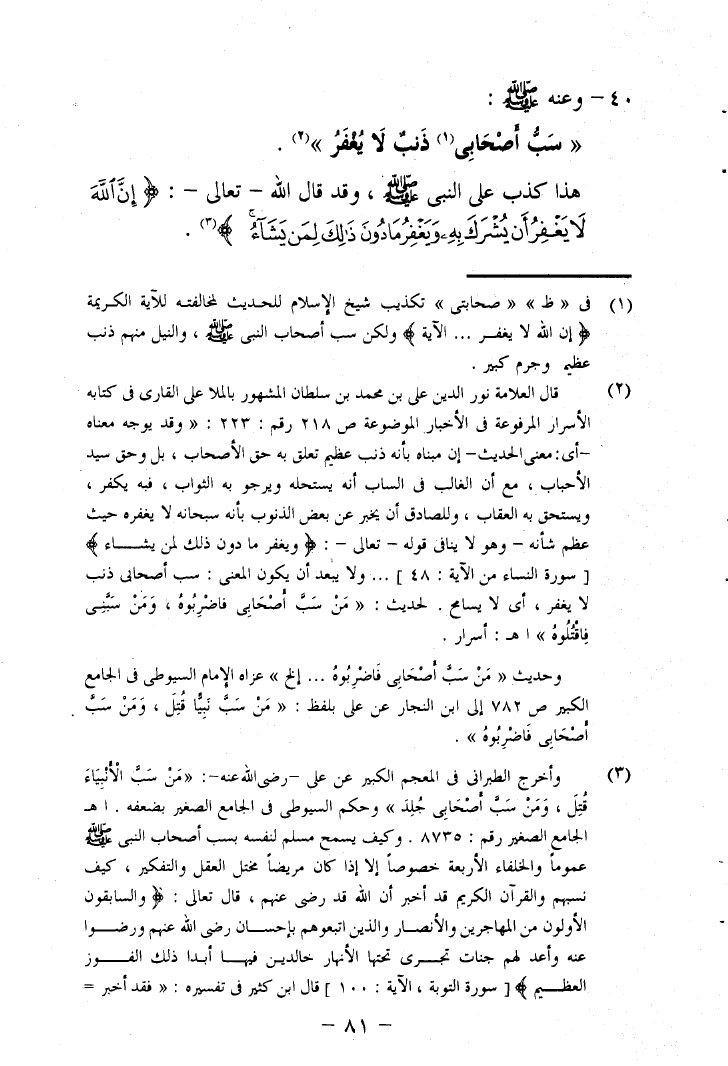 ٤٠ – وعنه ﷺ :
« سَبُّ أَصْحَابِى(١) ذَنبٌ لَا يُغْفَرُ »(٢) .
هذا كذب على النبى ﷺ ، وقد قال الله – تعالى – : ﴿ إِنَّ ٱللَّهَ
لَا يَغْفِرُ أَن يُشْرَكَ بِهِۦ وَيَغْفِرُ مَا دُونَ ذَٰلِكَ لِمَن يَشَآءُ ﴾(٣) .
(١) فى « ظ » « صحابتى » تكذيب شيخ الإسلام للحديث لمخالفته للآية الكريمة
﴿ إن الله لا يغفر ... الآية ﴾ ولكن سب أصحاب النبى ﷺ ، والنيل منهم ذنب
عظيم وجرم كبير .
(٢) قال العلامة نور الدين على بن محمد بن سلطان المشهور بالملا على القارى فى كتابه
الأسرار المرفوعة فى الأخبار الموضوعة ص ٢١٨ رقم : ٢٢٣ : « وقد يوجه معناه
–أى: معنى الحديث– إن مبناه بأنه ذنب عظيم تعلق به حق الأصحاب ، بل وحق سيد
الأحباب ، مع أن الغالب فى الساب أنه يستحله ويرجو به الثواب ، فبه يكفر ،
ويستحق به العقاب ، وللصادق أن يخبر عن بعض الذنوب بأنه سبحانه لا يغفره حيث
عظم شأنه – وهو لا ينافى قوله – تعالى – : ﴿ ويغفر ما دون ذلك لمن يشاء ﴾
[ سورة النساء من الآية : ٤٨ ] ... ولا يبعد أن يكون المعنى : سب أصحابى ذنب
لا يغفر ، أى لا يسامح . لحديث : « مَنْ سَبَّ أَصْحَابِى فَاضْرِبُوهُ ، وَمَنْ سَبَّنِى
فَاقْتُلُوهُ » ا هـ : أسرار .
وحديث « مَنْ سَبَّ أَصْحَابِى فَاضْرِبُوهُ ... إلخ » عزاه الإمام السيوطى فى الجامع
الكبير ص ٧٨٢ إلى ابن النجار عن على بلفظ : « مَنْ سَبَّ نَبِيًّا قُتِلَ ، وَمَنْ سَبَّ
أَصْحَابِى فَاضْرِبُوهُ » .
(٣) وأخرج الطبرانى فى المعجم الكبير عن على –رضى الله عنه–: «مَنْ سَبَّ الْأَنْبِيَاءَ
قُتِلَ ، وَمَنْ سَبَّ أَصْحَابِى جُلِدَ » وحكم السيوطى فى الجامع الصغير بضعفه . ا هـ
الجامع الصغير رقم : ٨٧٣٥ . وكيف يسمح مسلم لنفسه بسب أصحاب النبى ﷺ
عموماً والخلفاء الأربعة خصوصاً إلا إذا كان مريضاً مختل العقل والتفكير ، كيف
نسبهم والقرآن الكريم قد أخبر أن الله قد رضى عنهم ، قال تعالى : ﴿ والسابقون
الأولون من المهاجرين والأنصار والذين اتبعوهم بإحسان رضى الله عنهم ورضوا
عنه وأعد لهم جنات تجرى تحتها الأنهار خالدين فيها أبدا ذلك الفوز
العظيم ﴾ [ سورة التوبة ، الآية : ١٠٠ ] قال ابن كثير فى تفسيره : « فقد أخبر =
– ٨١ –